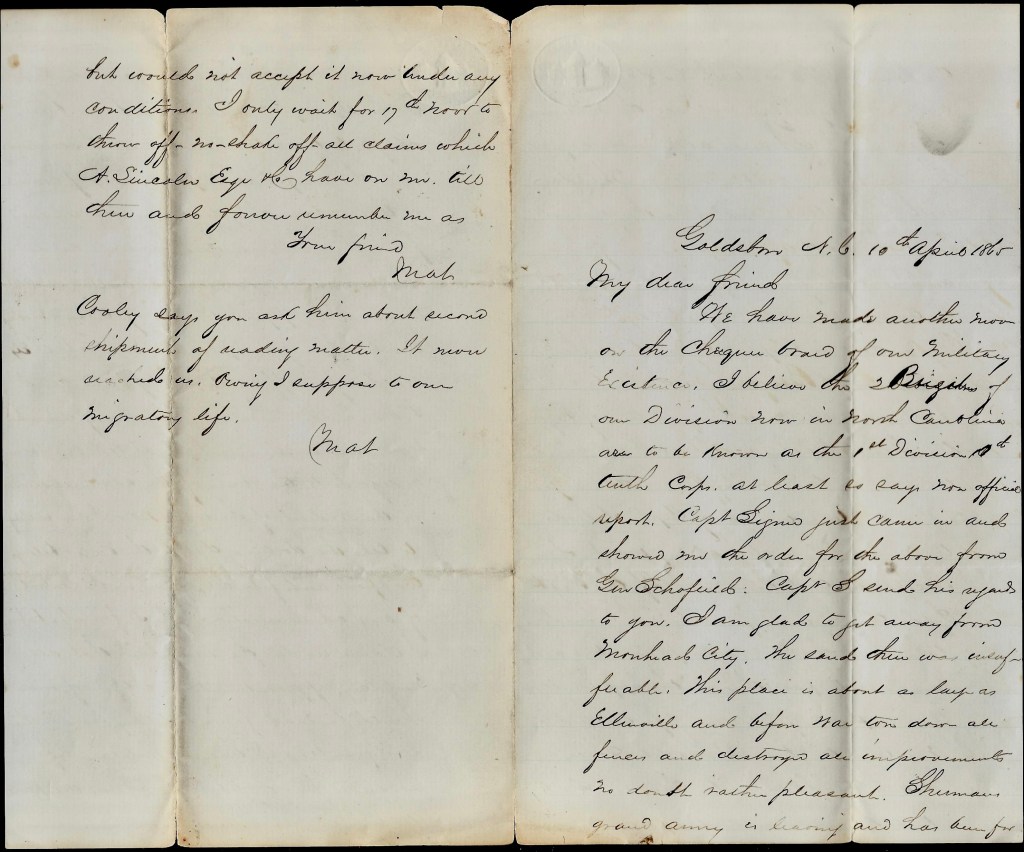 but would not accept it now under any
conditions I only wait for 17th Novr to
throw off - no - shake off all claims which
A. Lincoln Esqr & Co have on me. till
then and forever remember me as
Your friend
Mat
Cooley says you ask him about second
shipment of reading matter. It never
reached us. Owing I suppose to our
migratory life.
Mat
Goldsboro N.C. 10th April 1865
My dear friend
We have made another move
on the Chequer board of our Military
Existence. I believe the 2 Brigades of
our Division now in North Carolina
are to be known as the 1st Division 10th
tenth Corps. at least so says non official
report. Capt just came in and
showed me the order for the above from
Gen Schofield. Capt S send his regards
to you. I am glad to get away from
Morehead City. The sand there was insuf-
ferable. This place is about as large as
Ellenville and before war tore down all
fences and destroyed all improvements
no doubt rather pleasant. Shermans
grand army is leaving and has been for